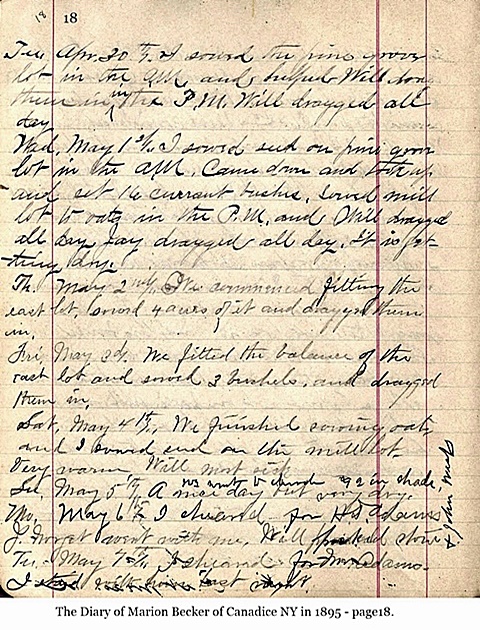 18 18
Tue, Apr. 30th, I sowed the pine grove
lot in the A.M. and helped Will drag
them in in the P.M. Will dragged all
day
Wed, May 1st, I sowed seed on pine grove
lot in the A.M. Came down and took up
and set 16 currant bushes, sowed mill
lot to oats in the P.M. and Will dragged
all day Jay dragged all day. It is get-
-ting dry.
Th. May 2nd, We commenced fitting the
east lot, sowed 4 acres of it and dragged them
in.
Fri, May 3d, We fitted the balance of the
east lot and sowed 3 bushels, and dragged
them in,
Sat, May 4th, We finished sowing oats,
and I sowed seed on the mill lot
Very warm Will most sick
we went to church 92 in shade.
Su, May 5th, A nice day but very dry.
Mo, May 6th, I sheared for H.D. Adams,
& John
J. went with me, Will picked stone
Tu. May 7th, I sheared for Adams.
I
The Diary of Marion Becker of Canadice NY in 1895 - page18.